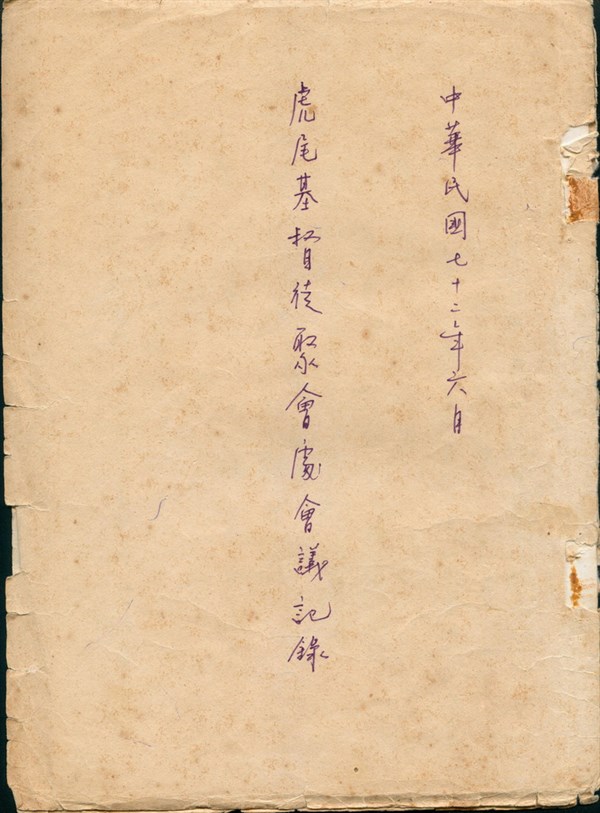 中華民國七十二年六月
虎尾基督徒聚會處會議記錄